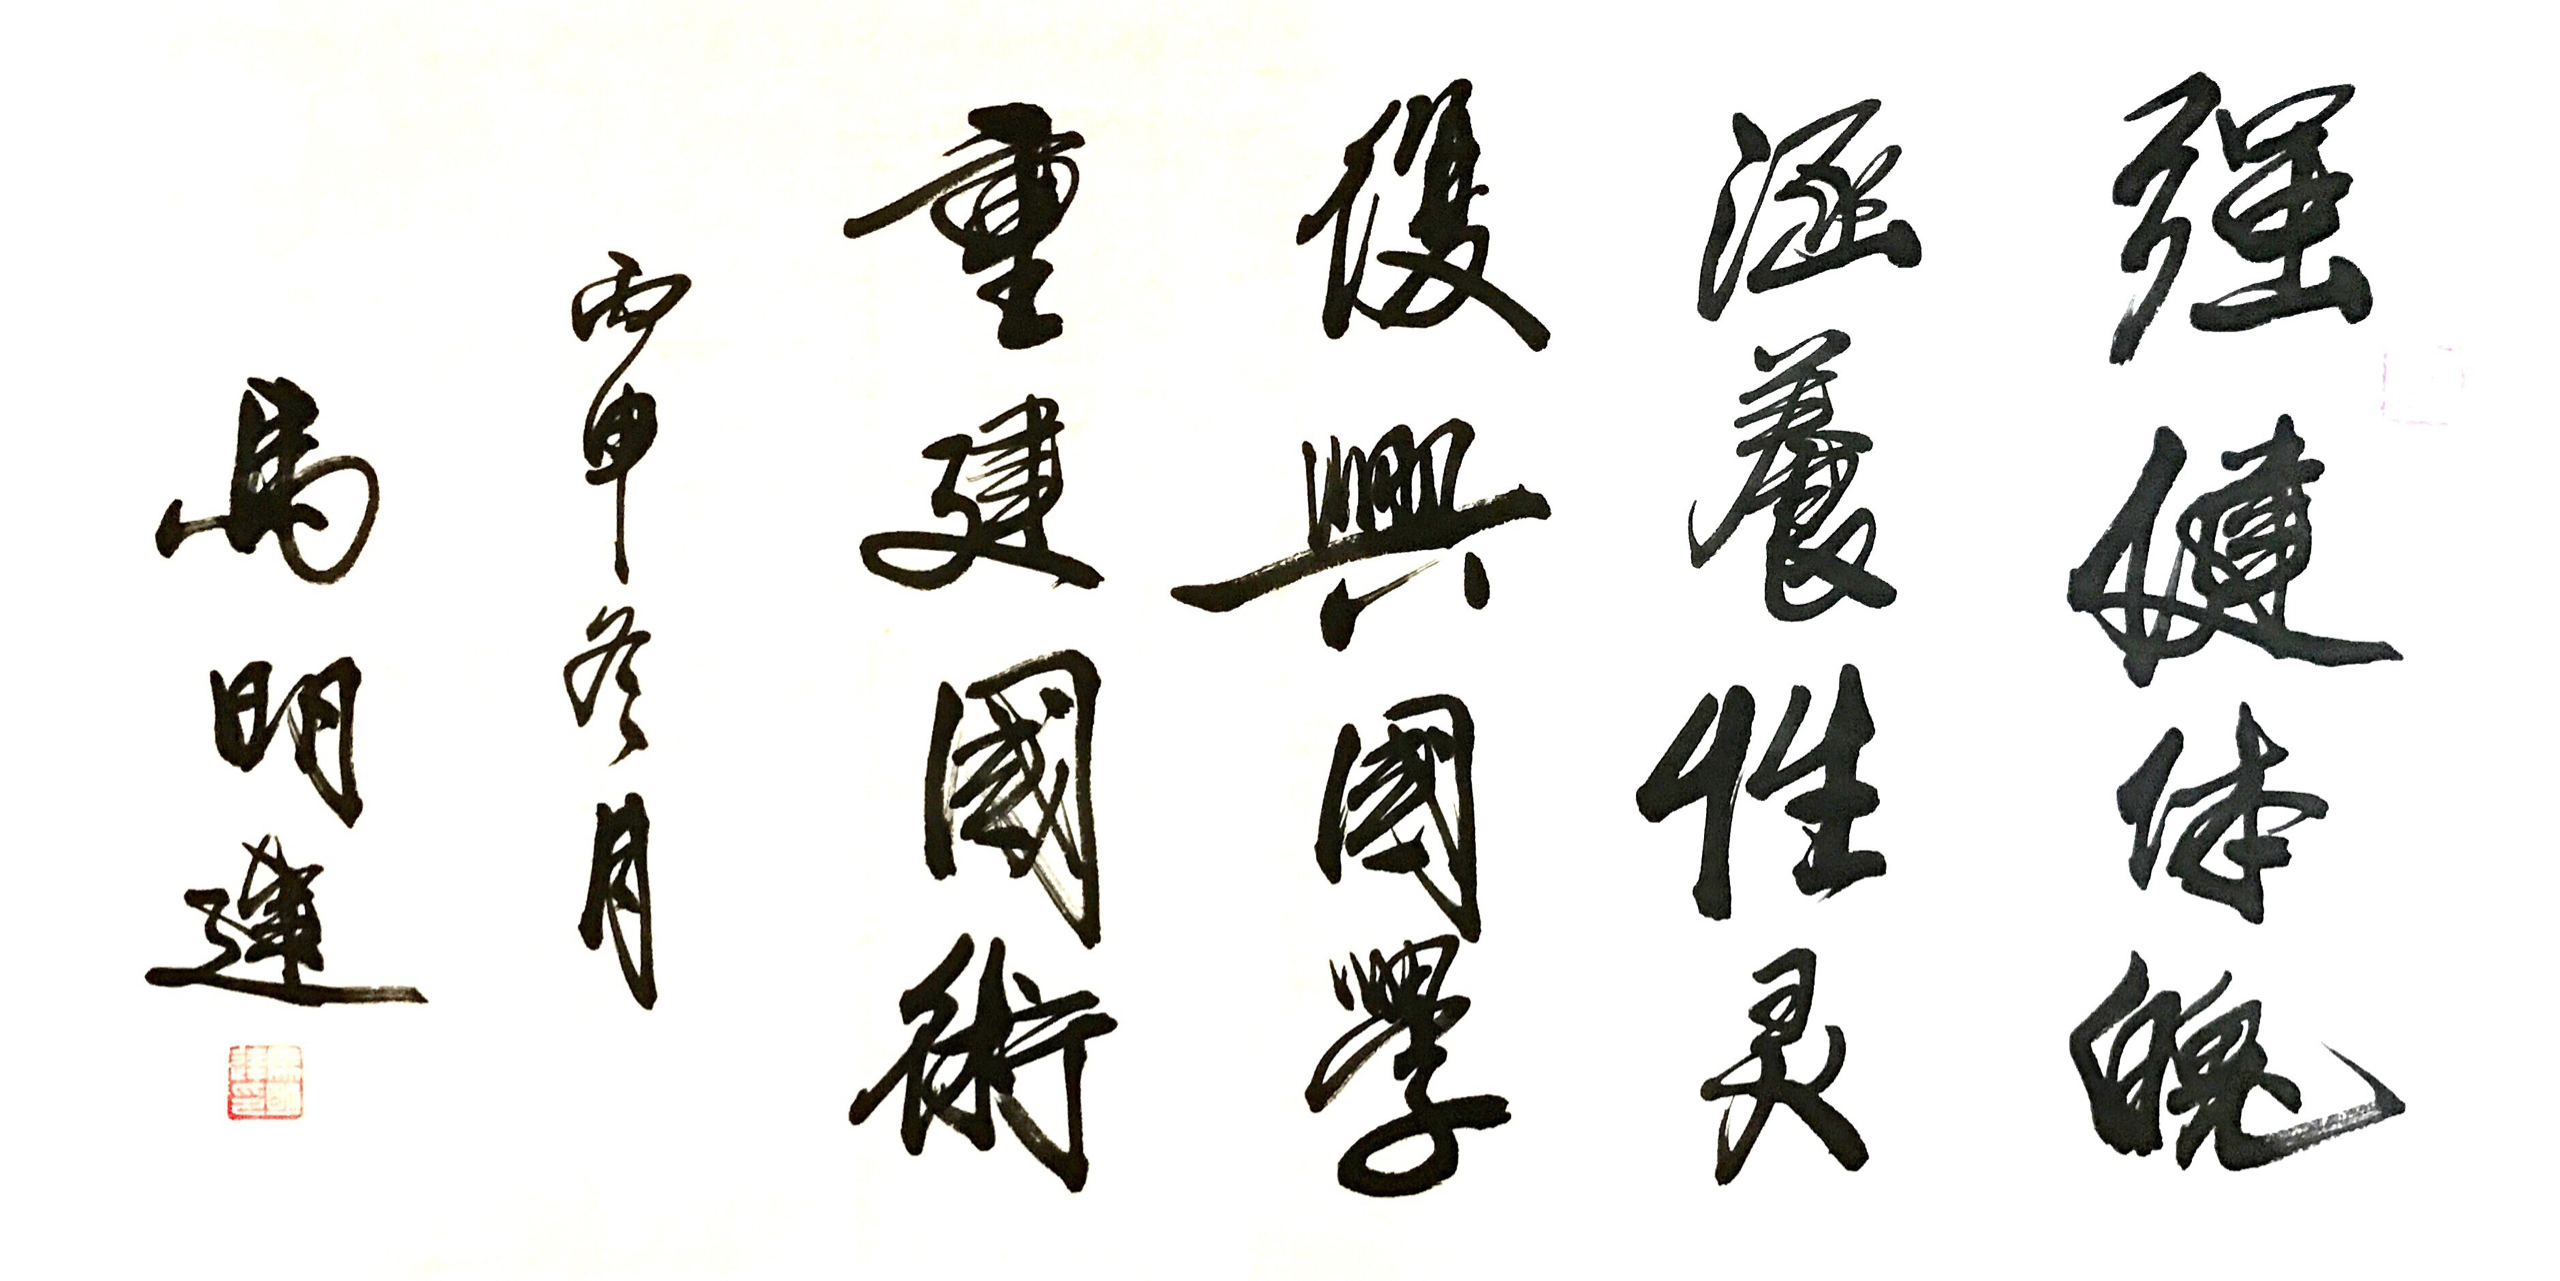 强健体魄
涵養性灵
復興國學
重建國術
丙申冬月
馬明達